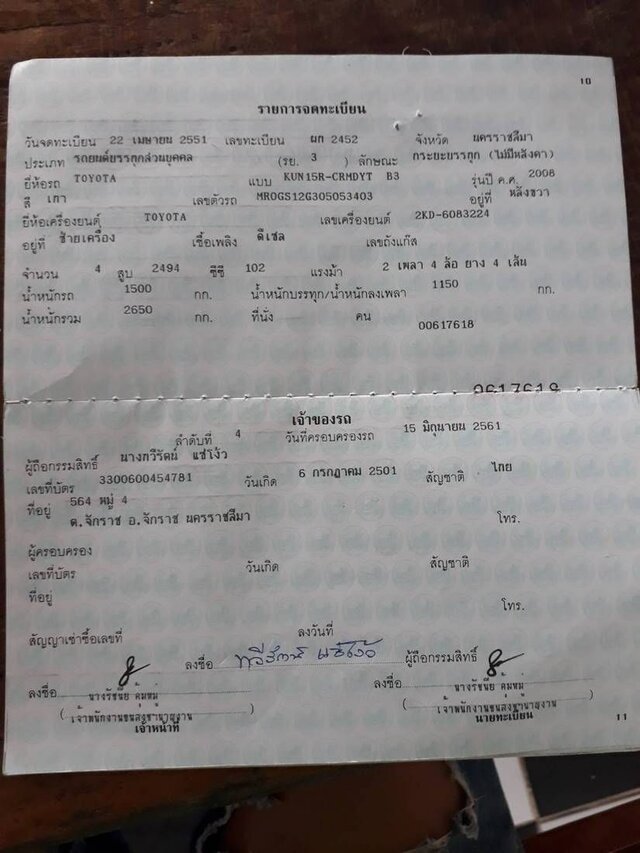 10
รายการจดทะเบียน
วันจดทะเบียน 22 เมษายน 2551 เลขทะเบียน ผก 2452 จังหวัด นครราชสีมา
ประเภท รถยนต์บรรทุกส่วนบุคคล (รย. 3 ) ลักษณะ กระบะบรรทุก (ไม่มีหลังคา)
ยี่ห้อรถ TOYOTA แบบ KUN15R-CRMDYT B3 รุ่นปี ค.ศ. 2008
สี เทา เลขตัวรถ MR0GS12G305053403 อยู่ที่ หลังขวา
ยี่ห้อเครื่องยนต์ TOYOTA เลขเครื่องยนต์ 2KD-6083224
อยู่ที่ ซ้ายเครื่อง เชื้อเพลิง ดีเซล เลขถังแก๊ส
จำนวน 4 สูบ 2494 ซีซี 102 แรงม้า 2 เพลา 4 ล้อ ยาง 4 เส้น
น้ำหนักรถ 1500 กก. น้ำหนักบรรทุก/น้ำหนักลงเพลา 1150 กก.
น้ำหนักรวม 2650 กก. ที่นั่ง คน
00617618
0617618
เจ้าของรถ
ลำดับที่ 4 วันที่ครอบครองรถ 15 มิถุนายน 2561
ผู้ถือกรรมสิทธิ์ นางทวีรัตน์ แซ่โง้ว
เลขที่บัตร 3300600454781 วันเกิด 6 กรกฎาคม 2501 สัญชาติ ไทย
ที่อยู่ 564 หมู่ 4
ต.จักราช อ.จักราช นครราชสีมา โทร.
ผู้ครอบครอง
เลขที่บัตร วันเกิด สัญชาติ
ที่อยู่ โทร.
สัญญาเช่าซื้อเลขที่ ลงวันที่
ลงชื่อ ทวีรัตน์ แซ่โง้ว ผู้ถือกรรมสิทธิ์
ลงชื่อ ลงชื่อ
นางรัชนีย คุ้มหมู่ นางรัชนีย คุ้มหมู่
(เจ้าพนักงานขนส่งชำนาญงาน) (เจ้าพนักงานขนส่งชำนาญงาน)
เจ้าหน้าที่ นายทะเบียน
11